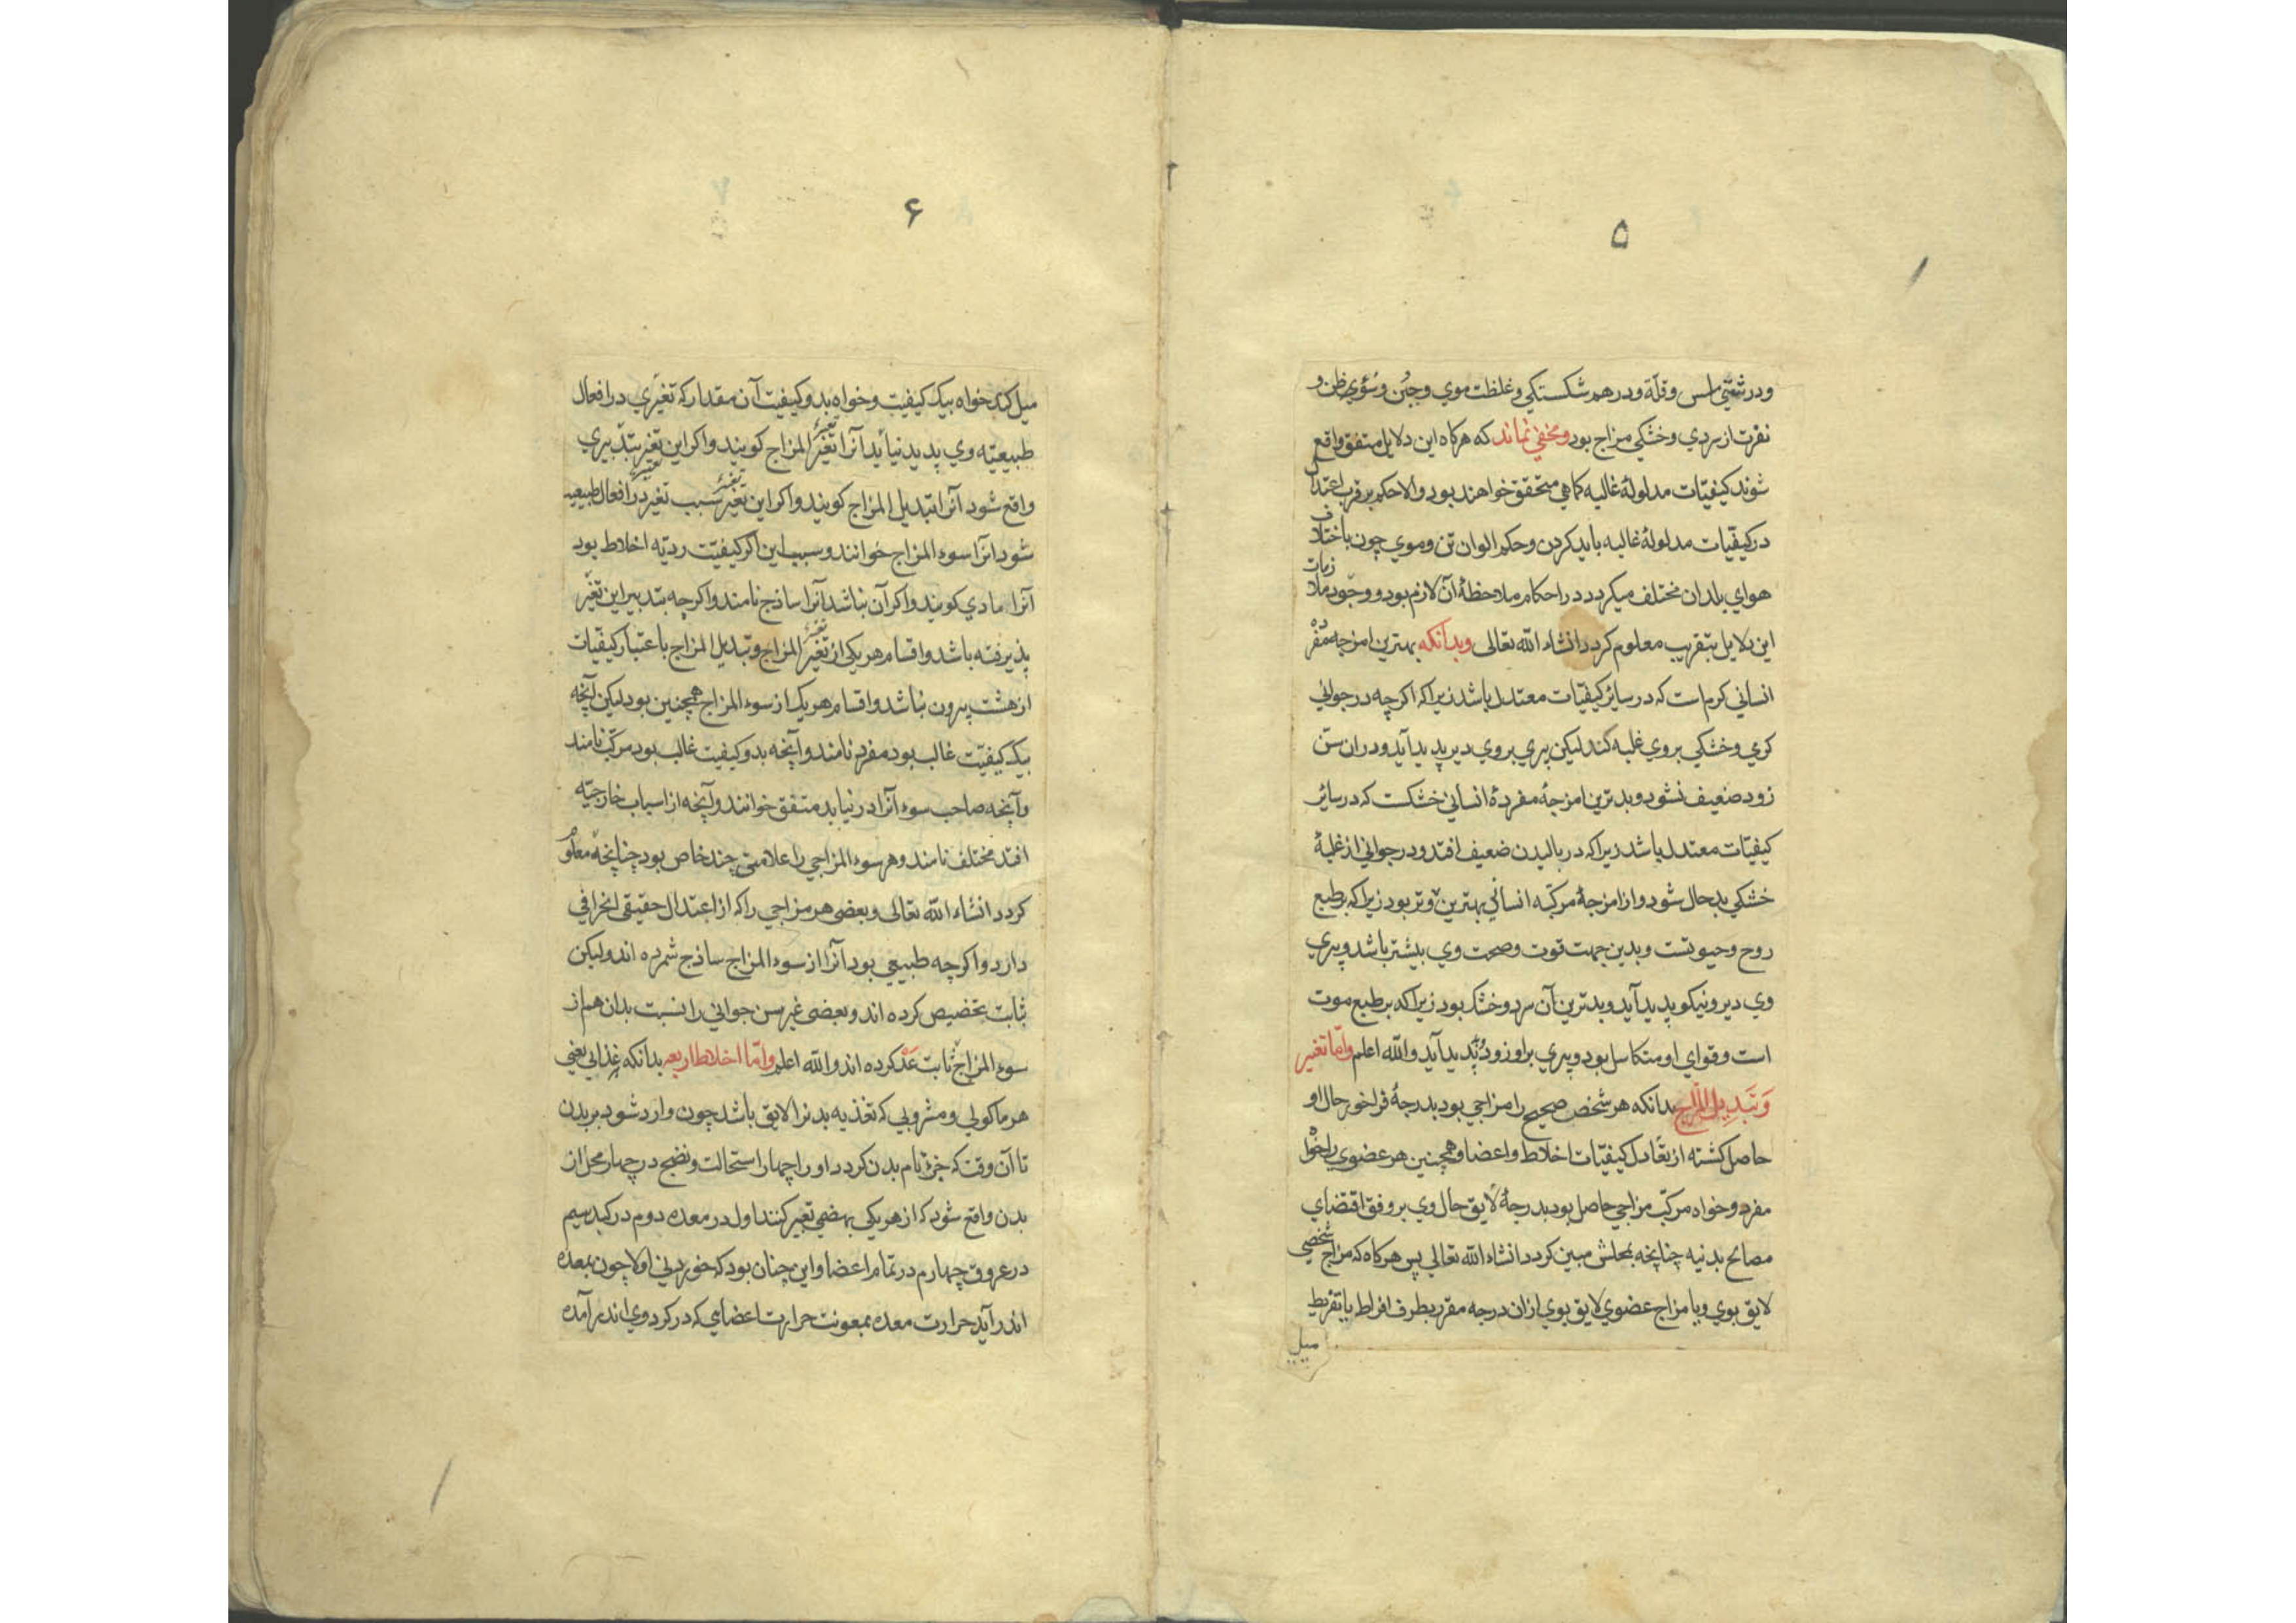 ۵
ودرشتی ملس وقلة ودرهم شکستکي وغلظت موي وجبُن وسُوي ظن و
نفرت از سردي وخشکي مزاج بود ومخفي نماند که هرکاه این دلایل متفق واقع
شوند کیفیّات مدلولهٔ غالبه کماهي متحقق خواهند بود والا حکم بر قرب اعتدال
در کیفیّات مدلولهٔ غالبه باید کردن وحکم الوان تن وموي چون باختلاف
هواي بلدان مختلف میکردد در احکام ملاحظهٔ آن لازم بود ووجود ملازمات
این دلایل بتقریب معلوم کردد انشاء الله تعالی وبدانکه بهترین امزجهٔ مفرده
انساني کرم است که در سائر کیفیّات معتدل باشد زیرا که اکرچه در جواني
کرمي وخشکي بروي غلبه کند لیکن پیري بروي دیر پدید آید ودران سنّ
زود ضعیف نشود وبدترین امزجهٔ مفردهٔ انساني خشکست که در سائر
کیفیّات معتدل باشد زیرا که در بالیدن ضعیف افتد ودر جواني از غلبهٔ
خشکي بدحال شود واز امزجهٔ مرکبّه انساني بهترین وتر بود زیرا که بر طبع
روح وحیوتست وبدین جهت قوت وصحت وي بیشتر باشد وپیري
وي دیر ونیکو پدید آید وبدترین آن سرد وخشک بود زیرا که بر طبع موت
است وقواي او متکاسل بود وپیري براو زود پدید آید والله اعلم وامّا تغیر
وَتَبدِیل المزاج بدانکه هر شخص صحیح را مزاجي بود بدرجهٔ فراخور حال او
حاصل کشته از تعادل کیفیّات اخلاط واعضا وهمچنین هر عضوي را خواه
مفرد وخواه مرکبّ مزاجي حاصل بود بدرجهٔ لایق حال وي بر وفق اقتضاي
مصالح بدنیه چنانچه بمحلش مبین کردد انشاء الله تعالي پس هرکاه که مزاج شخصي
لایق بوي ویا مزاج عضوي لایق بوي ازان درجه مقرر بطرف افراط یا تفریط
میل
۶
میل کند خواه بیک کیفیت وخواه بدو کیفیت آن مقدار که تغیّري در افعال
طبیعیّه وي پدید نیاید آنرا تغیّر المزاج کویند واکر این تغیر بتدبیري
واقع شود آنرا تبدیل المزاج کویند واکر این تغیر سبب تغیر در افعال طبیعیه
شود انرا سوء المزاج خوانند وسبب این اکر کیفیّت ردیّه اخلاط بود
آنرا مادي کویند واکر آن نباشد آنرا ساذج نامند واکرچه بتدبیر این تغیّر
پذیرفته باشد واقسام هر یکي از تغیّر المزاج وتبدیل المزاج باعتبار کیفیّات
از هشت بیرون نباشد واقسام هر یک از سوء المزاج همچنین بود لیکن آنچه
بیک کیفیّت غالب بود مفرد نامند وآنچه بدو کیفیت غالب بود مرکّب نامند
وآنچه صاحب سوء آنرا در نیابد متفق خوانند وآنچه از اسباب خارجیّه
افتد مختلف نامند وهر سوء المزاجي را علامتي چند خاص بود چنانچه معلوم
کردد انشاء الله تعالی وبعضی هر مزاجي را که از اعتدال حقیقی انحرافي
دارد واکرچه طبیعي بود آنرا از سوء المزاج ساذج شمرده اند ولیکن
بثابت تخصیص کرده اند وبعضی غیر سن جواني را نسبت بدان هم از
سوء المزاج ثابت عَدّ کرده اند والله اعلم وامّا اخلاط اربعه بدانکه غذایي یعني
هر ماکولي ومشروبي که تغذیه بدنرا لایق باشد چون وارد شود بر بدن
تا آن وقت که جزؤ تام بدن کردد او را چهار استحالت ونضج در چهار محل از
بدن واقع شود که از هر یکي بهضمي تعبیر کنند اول در معده دوم در کبد سیم
در عروق چهارم در تمام اعضا واین چنان بود که خوردني اولا چون بمعده
اندر آید حرارت معده بمعونت حرارت اعضاي که در کرد وي اند بر آمده